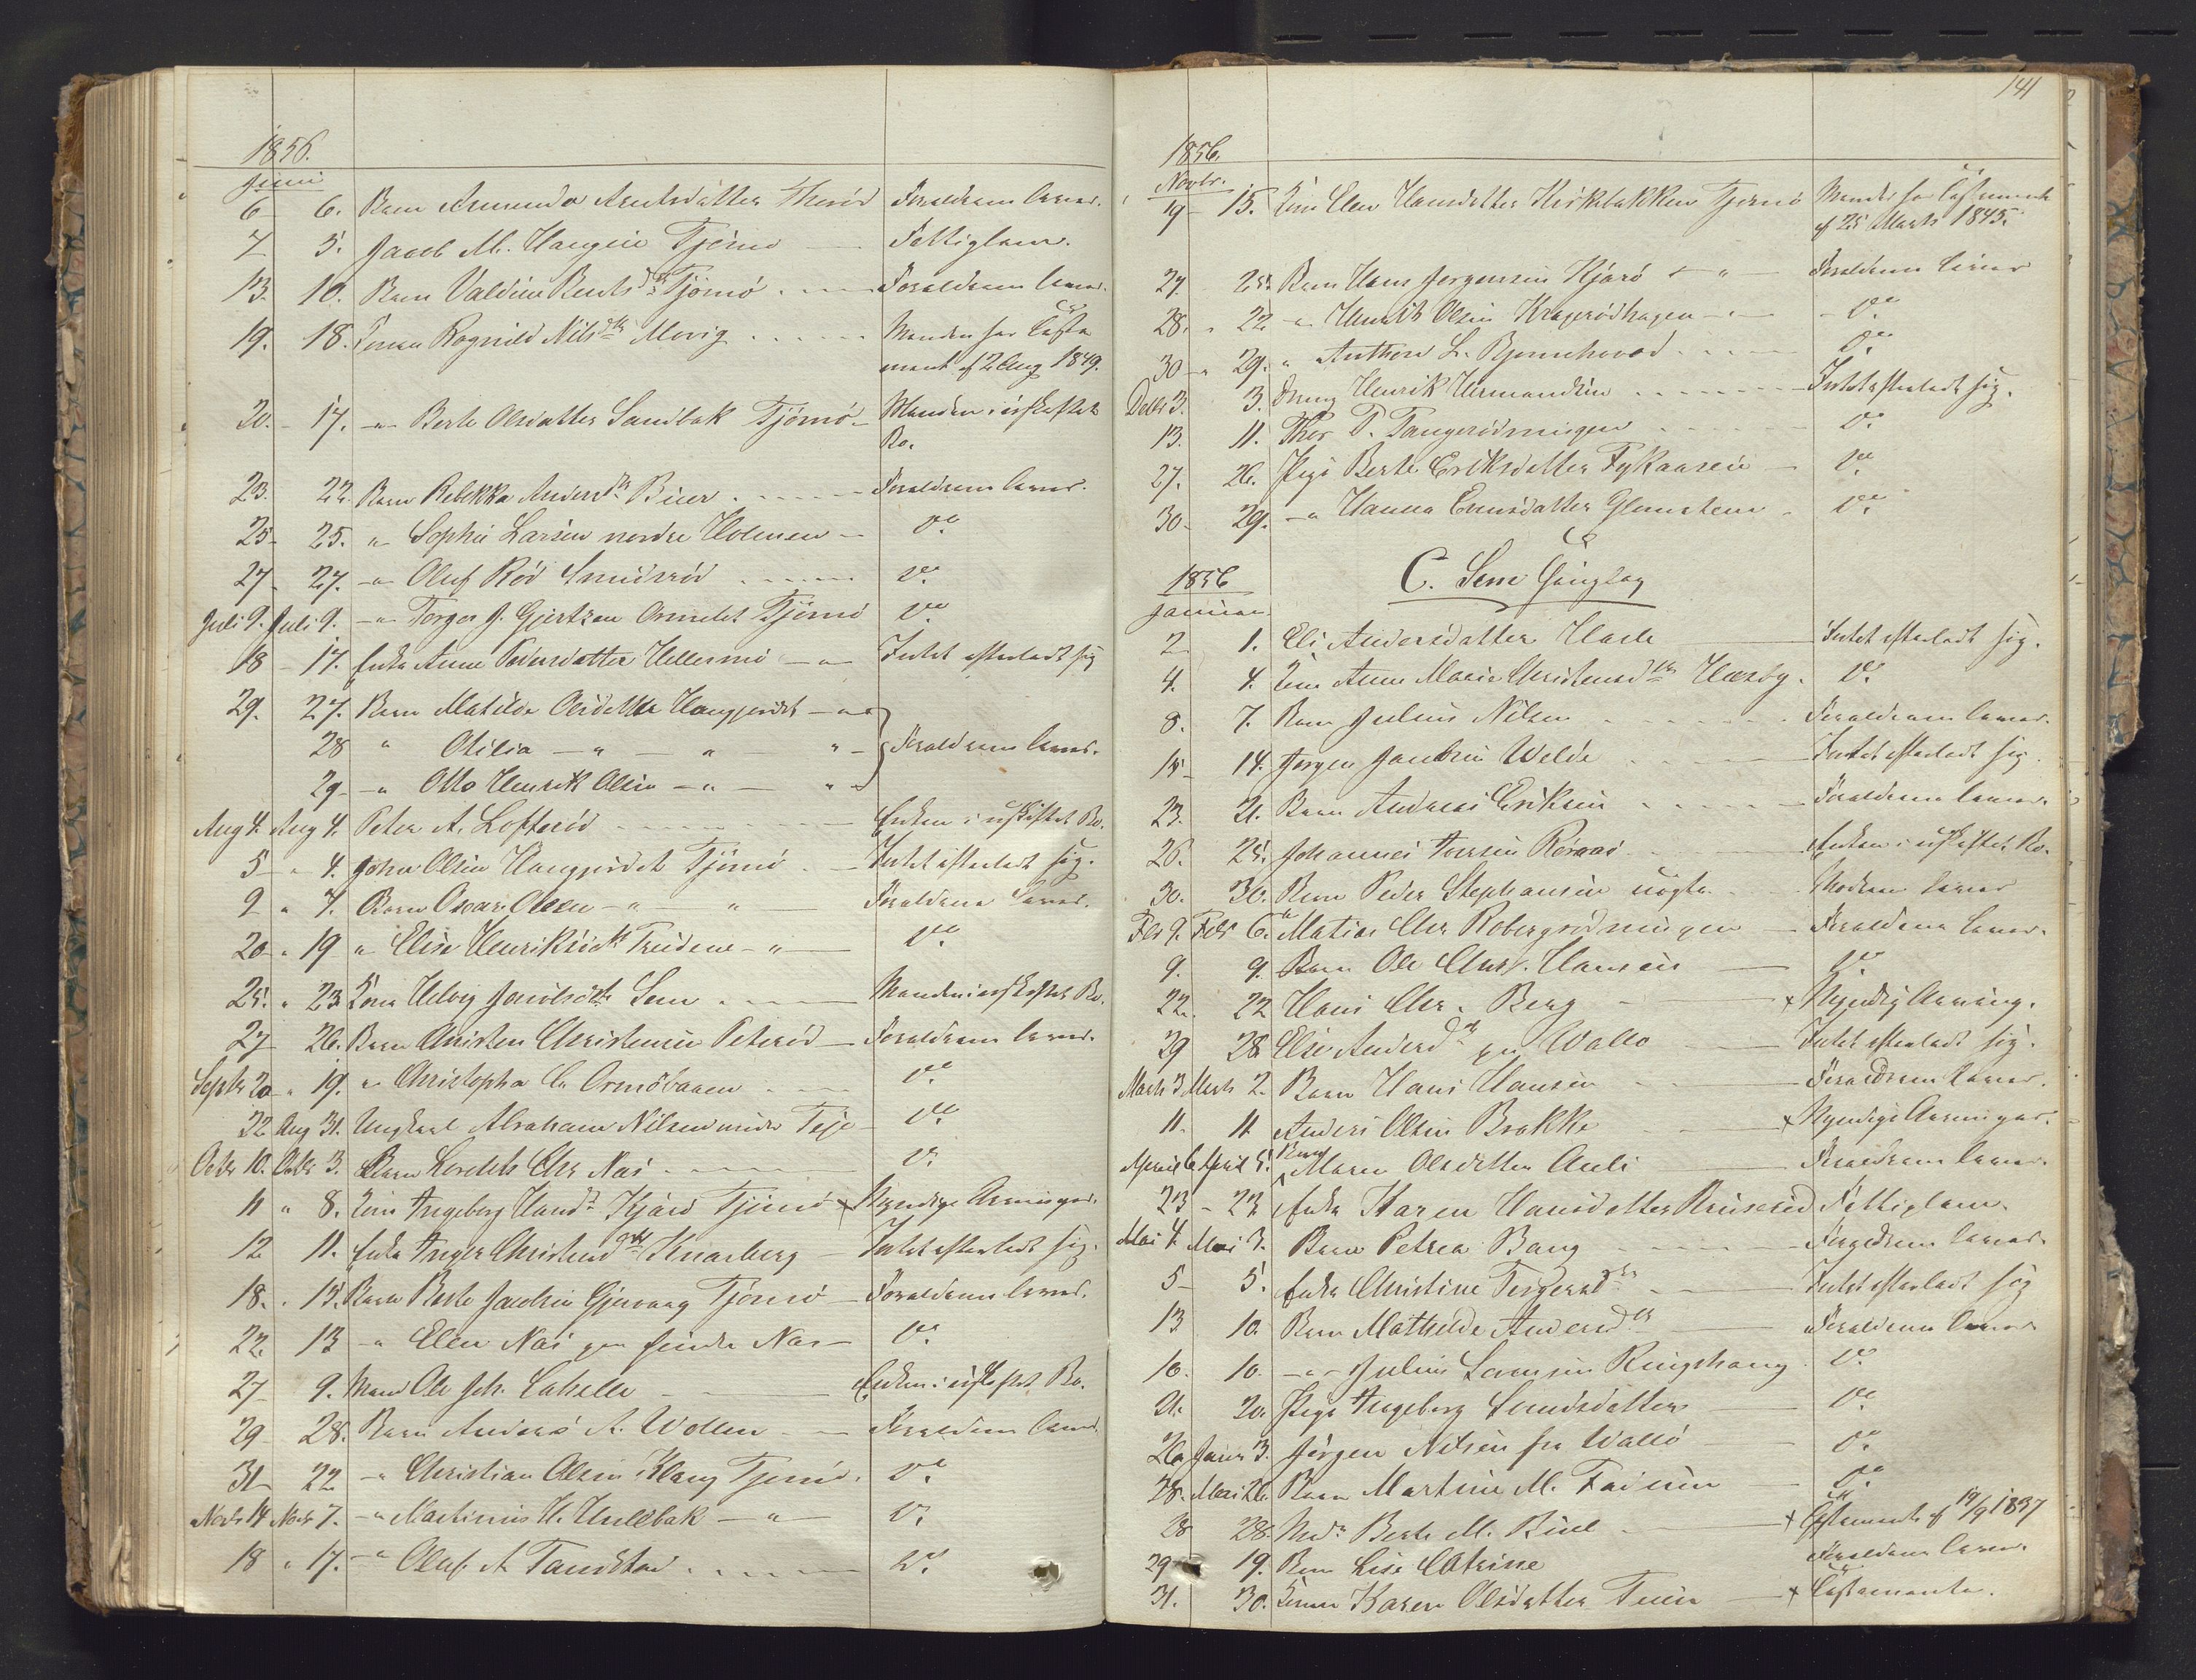 1856.
Juni
6 6. Barn Amunda Arntsdatter Therød Forældrene lever.
7 5. Jacob M. Haugen Tjømø Fattiglem.
13. 10. Barn Valdine Bentsdtr Tjømø Forældrene lever.
19. 18. Konen Ragnild Nilsdtr Movig Manden har Testa
ment af 2 Aug 1849.
20. 17. -"- Berte Olesdatter Sandbæk Tjømø Manden i uskiftet
Bo.
23. 22. Barn Rebekka Andersdtr Buer Forældrene lever.
25 25. " Sophie Larsen nordre Holmen do.
27 27. -"- Oluf Rød Smidsrød do.
Juli 9. Juli 9. -"- Torger J. Gjertsen Ormelet Tjømø do.
18 17. Enke Anne Pedersdatter Hellesmo -"- Intet efterladt sig
29. 27. Barn Matilde Olesdatter Haugjordet -"-
28 " Otilia -"- " " Forældrene lever.
29 -"- Otto Henrik Olsen -"- "
Aug 4. Aug 4. Peter A. Lofterød Enken i uskiftet Bo.
5 " 4. John Olsen Haugjordet Tjømø Intet efterladt sig.
9 " 7. Barn Oscar Olsen -"- " Forældrene lever.
20 " 19 " Elise Henriksdtr -"- do.
25. " 23 Kone Helvig Jacobsdtr Sem Manden i uskiftet Bo.
27 26. Barn Christen Christensen Peterød Forældrene lever.
Septbr 20 " 19. " Christopha C. do.
22 Aug 31. Ungkarl Abraham Nilsen do.
Octbr 10. Octbr 3. Barn Chr Næs do.
11 " 8. Kone Ingeborg Hansdr Kjærø Tjømø Myndige Arvinger.
12 11. Enke Inger Christensdtr Knarberg Intet efterladt sig.
18. " 15. Barn Berte Jacobsen Gjervaag Tjømø Forældrene lever.
22. 13 -"- Elen Næs Næs do.
27 9. Mand Ole Joh. Enken i uskiftet Bo.
29 28. Barn Anders A. Wollen Forældrene lever.
31 22 -"- Christian Olsen Haug Tjømø. do.
Novbr 14 Novbr 7. -"- Martinius H. Hullbæk -"- do.
18 " 17. -"- Oluf A. do.
141
1856.
Novbr.
19 15. Kone Elen Hansdatter Kirkebakken Tjømø Manden har Testament
af 25 Marts 1845.
27. 25. Barn Hans Jørgensen Kjærø -"- Forældrene lever
28. " 22 -"- Henrik Olsen Kragerødhagen do.
30 " 29. " Anthon L. Bjørnehoved do.
Decbr 3. 3. Dreng Henrik Hermandsen Intet efterladt sig.
13. 11. Thor P. Tangerødningen do.
27. 26. Pige Berte Eriksdatter Fykaasen do.
30 29. -"- Hanna Evensdatter do.
1856 C. Sems Thinglag
Januar
2 1. Eli Andersdatter Hasle Intet efterladt sig.
4. 4. Kone Anne Marie Christensdtr Huseby. do.
8. 7. Barn Julius Nilsen Forældrene lever.
15 14. Jørgen Jacobsen Welde Intet efterladt sig.
23. 21. Barn Andreas Eriksen Forældrene lever.
26. 25. Johannes Iversen Røraas Enken i uskiftet Bo.
30. 30. Barn Peder Stephansen uægte Moderen lever
Febr 9. Febr 6. " Matias Chr Robergrødningen Forældrene lever.
9. 9. Barn Ole Chr. Hansen do.
22. 22 Hans Chr. Berg x Myndig Arving.
29 28 Else Andersdtr Wallø Intet efterladt sig.
Marts 3 Marts 2. Barn Hans Hansen Forældrene lever.
11. 11 Anders Olsen Brekke x Myndige Arvinger.
April 6 April 5. Barn Maren Olesdatter Auli Forældrene lever.
23 23 Enke Karen Hansdatter Fattiglem.
Mai 4. Mai 3. Barn Petrea Bang Forældrene lever.
5 5. Enke Christine Torgersdtr Intet efterladt sig
13 10. Barn Mathilde Andersdtr Forældrene lever
16. 10. -"- Julius Lorensen Ringshaug do.
21. 20. Pige Ingeborg do.
26 Janr 3. Jørgen Nilsen fra Wallø do.
28. Mai 26. Barn Martine M. do.
28 28. Mad. Berte M. x Testament af 19/9 1837
29 19. Barn Lise Catrine Forældrene lever.
31. 30. Konen Karen Olesdatter x Testamente.